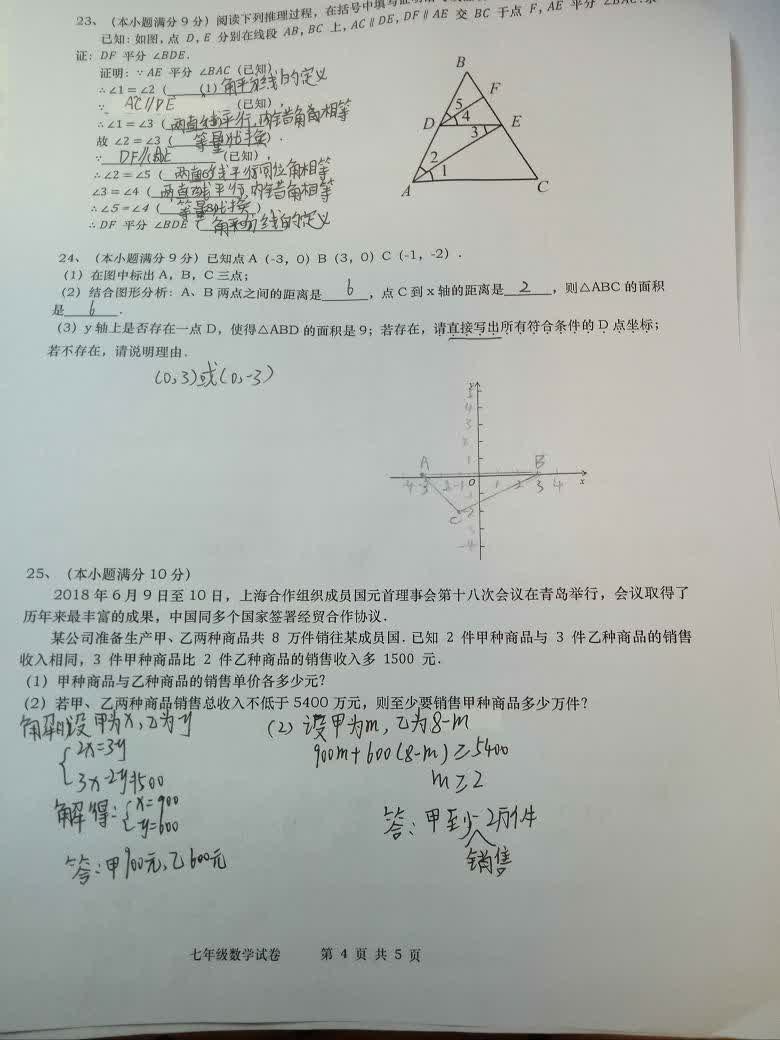 23、（本小题满分 9 分）阅读下列推理过程，在括号中填写
已知：如图，点 D，E 分别在线段 AB，BC 上，AC∥DE，DF∥AE 交 BC 于点 F，AE 平分 ∠BAC.求
证：DF 平分 ∠BDE.
证明：∵ AE 平分 ∠BAC（已知）
∴∠1=∠2（ (1) 角平分线的定义
∵ AC∥DE （已知），
∴∠1=∠3（两直线平行，内错角相等
故 ∠2=∠3（等量代换）.
∵ DF∥AE （已知），
∴∠2=∠5（两直线平行同位角相等
∠3=∠4（两直线平行，内错角相等
∴∠5=∠4（等量代换）
∴ DF 平分 ∠BDE（角平分线的定义
B
F
5
4
D
E
3
2
1
A
C
24、（本小题满分 9 分）已知点 A（-3，0）B（3，0）C（-1，-2）.
（1）在图中标出 A，B，C 三点；
（2）结合图形分析：A、B 两点之间的距离是 6 ，点 C 到 x 轴的距离是 2 ，则△ABC 的面积
是 6 .
（3）y 轴上是否存在一点 D，使得△ABD 的面积是 9；若存在，请直接写出所有符合条件的 D 点坐标；
若不存在，请说明理由.
(0,3)或(0,-3)
A B C 0 x
25、（本小题满分 10 分）
2018 年 6 月 9 日至 10 日，上海合作组织成员国元首理事会第十八次会议在青岛举行，会议取得了
历年来最丰富的成果，中国同多个国家签署经贸合作协议.
某公司准备生产甲、乙两种商品共 8 万件销往某成员国.已知 2 件甲种商品与 3 件乙种商品的销售
收入相同，3 件甲种商品比 2 件乙种商品的销售收入多 1500 元.
（1）甲种商品与乙种商品的销售单价各多少元？
（2）若甲、乙两种商品销售总收入不低于 5400 万元，则至少要销售甲种商品多少万件？
设甲为x，乙为y
2x=3y
3x-2y=1500
解得：x=900
y=600
答：甲900元，乙600元
(2) 设甲为m，乙为8-m
900m+600(8-m)≥5400
m≥2
答：甲至少2万件
销售
七年级数学试卷 第 4 页 共 5 页